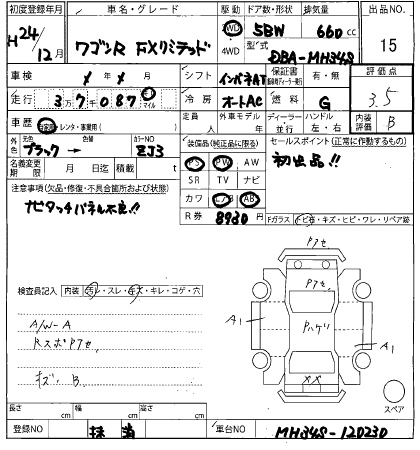 初度登録年月 車名・グレード 駆動 ドア数・形状 排気量 出品NO.
H24/12月 ワゴンR FXリミテッド 2WD 4WD 5BW 660cc 15
型式 DBA-MH34S
車検 / 月 シフト インパネAT 保証書 有・無 評価点
走行 37千087 マイル 冷房 オートAC 燃料 G 3.5
車歴 自家用 レンタ・事業用( ) 定員 人 外車モデル 年 ディーラー・並行 ハンドル 左・右 内装評価 B
外色 元色 ブラック → 色替 カラーNO ZJ3 装備品(純正品に限る) セールスポイント(正常に動作するもの)
名義変更期限 月 日迄 積載 t PS PW AW 初出品!!
注意事項(欠品・修復・不具合箇所および状態) SR TV ナビ
ナビタッチパネル不良!! カワ エアB ABS
R券 8930 Fガラス トビ石・キズ・ヒビ・ワレ・リペア跡
検査員記入 内装 汚レ・スレ・キズ・キレ・コゲ・穴
Pアセ
Pアセ、
A/W-A
RスポPアセ、
キズ B
A1
Pハゲリ
A1
XX
長さ cm 幅 cm 高さ cm スペア
登録NO 抹消 車台NO MH34S-120230